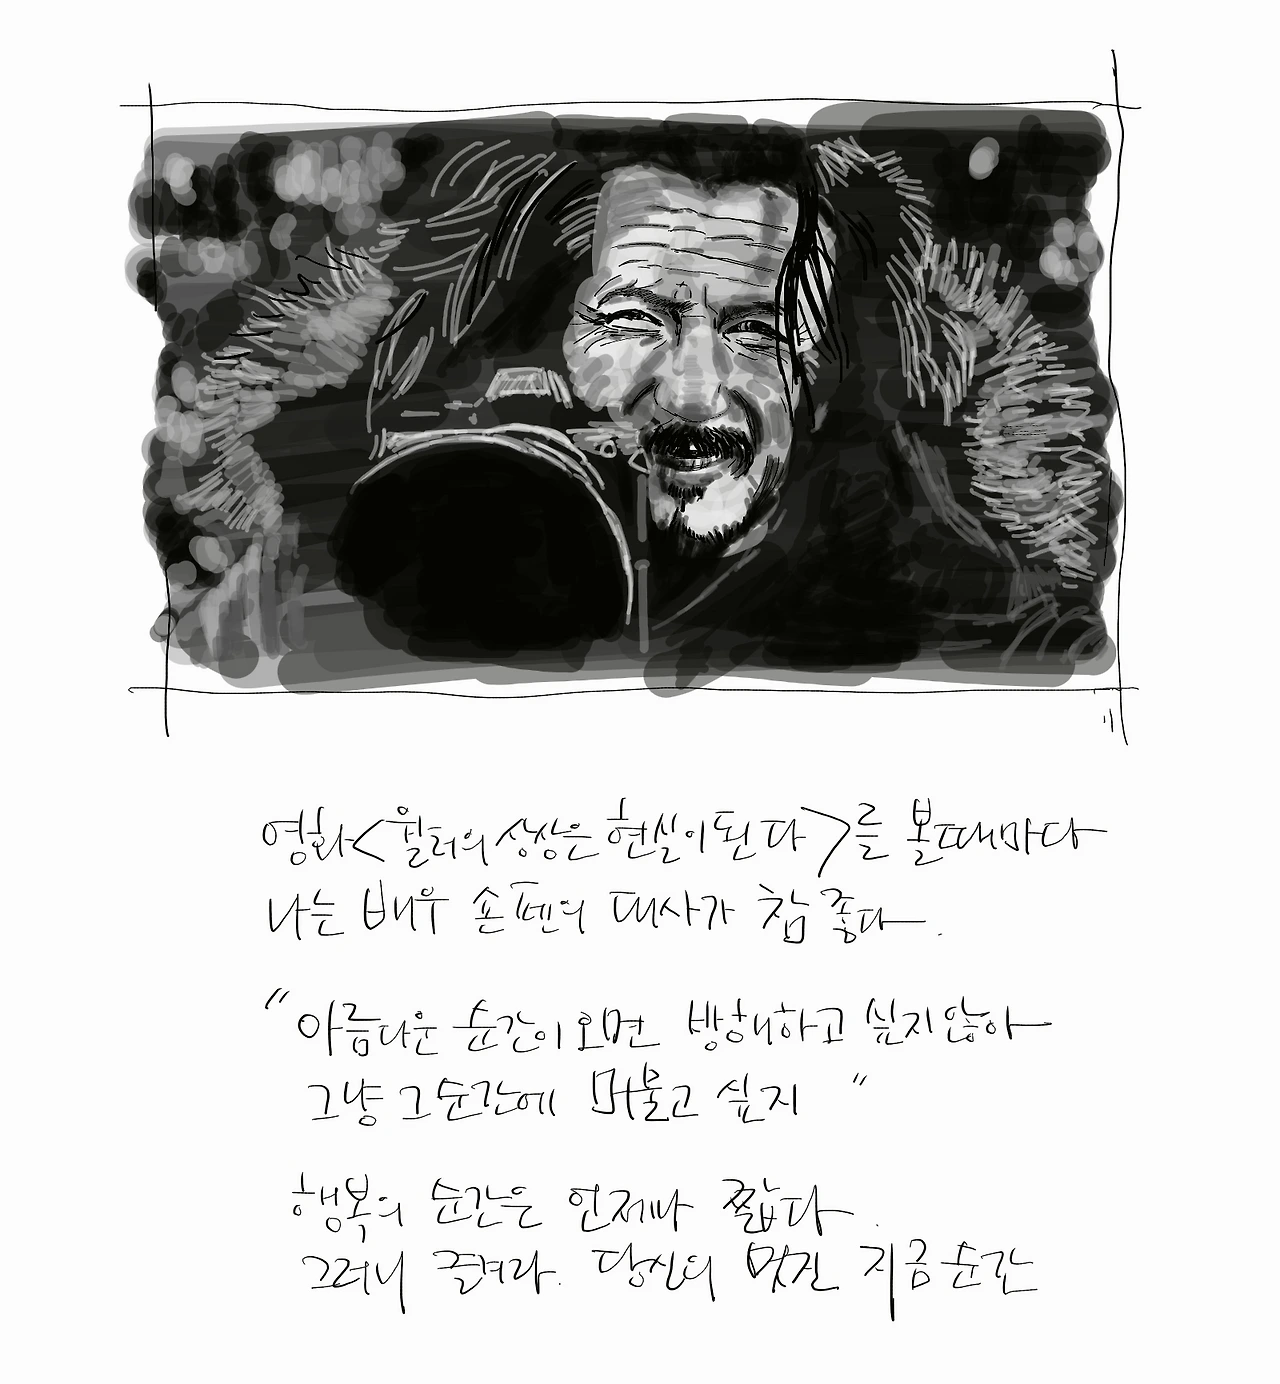 영화<월터의 상상은 현실이 된다>를 볼때마다
나는 배우 숀펜의 대사가 참 좋다.
"아름다운 순간이 오면 방해하고 싶지않아
그냥 그순간에 머물고 싶지"
행복의 순간은 언제나 짧다.
그러니 즐겨라. 당신의 멋진 지금 순간